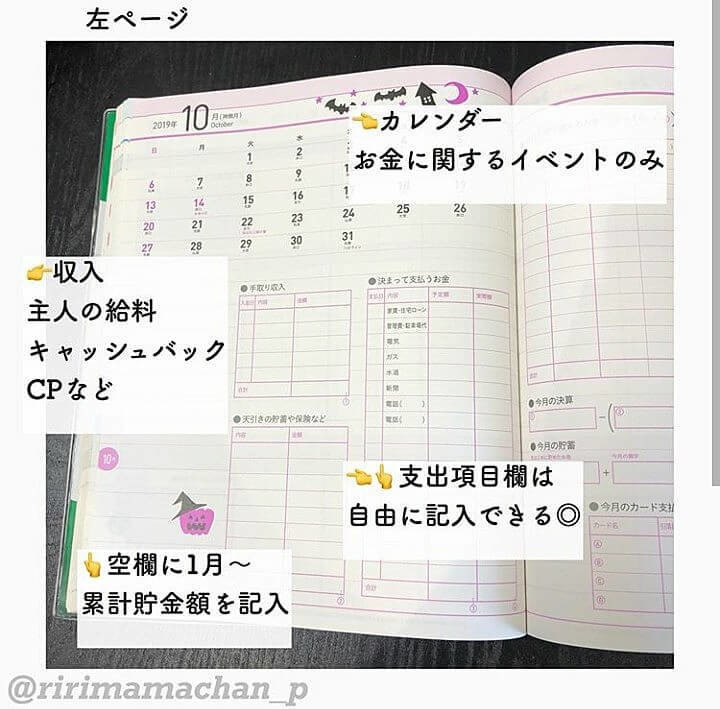 左ページ
2019年 10月(神無月) October
日 月 火 水
1 2
6 7 8 9
13 14 15 16
20 21 22 23 24 25 26
27 28 29 30 31
👈カレンダー
お金に関するイベントのみ
👉収入
主人の給料
キャッシュバック
CPなど
●手取り収入
入金日 内容 金額
合計
①
●決まって支払うお金
支払日 内容 予定額 実際額
家賃・住宅ローン
管理費・駐車場代
電気
ガス
水道
新聞
電話( )
電話( )
合計
③
●天引きの貯蓄や保険など
内容 金額
合計
②
10月
👈👆支出項目欄は
自由に記入できる◎
👆空欄に1月〜
累計貯金額を記入
●今月の決算
①
②
●今月の貯蓄
今月の黒字
●今月のカード支払
カード名
Ⓐ
Ⓑ
@ririmamachan_p